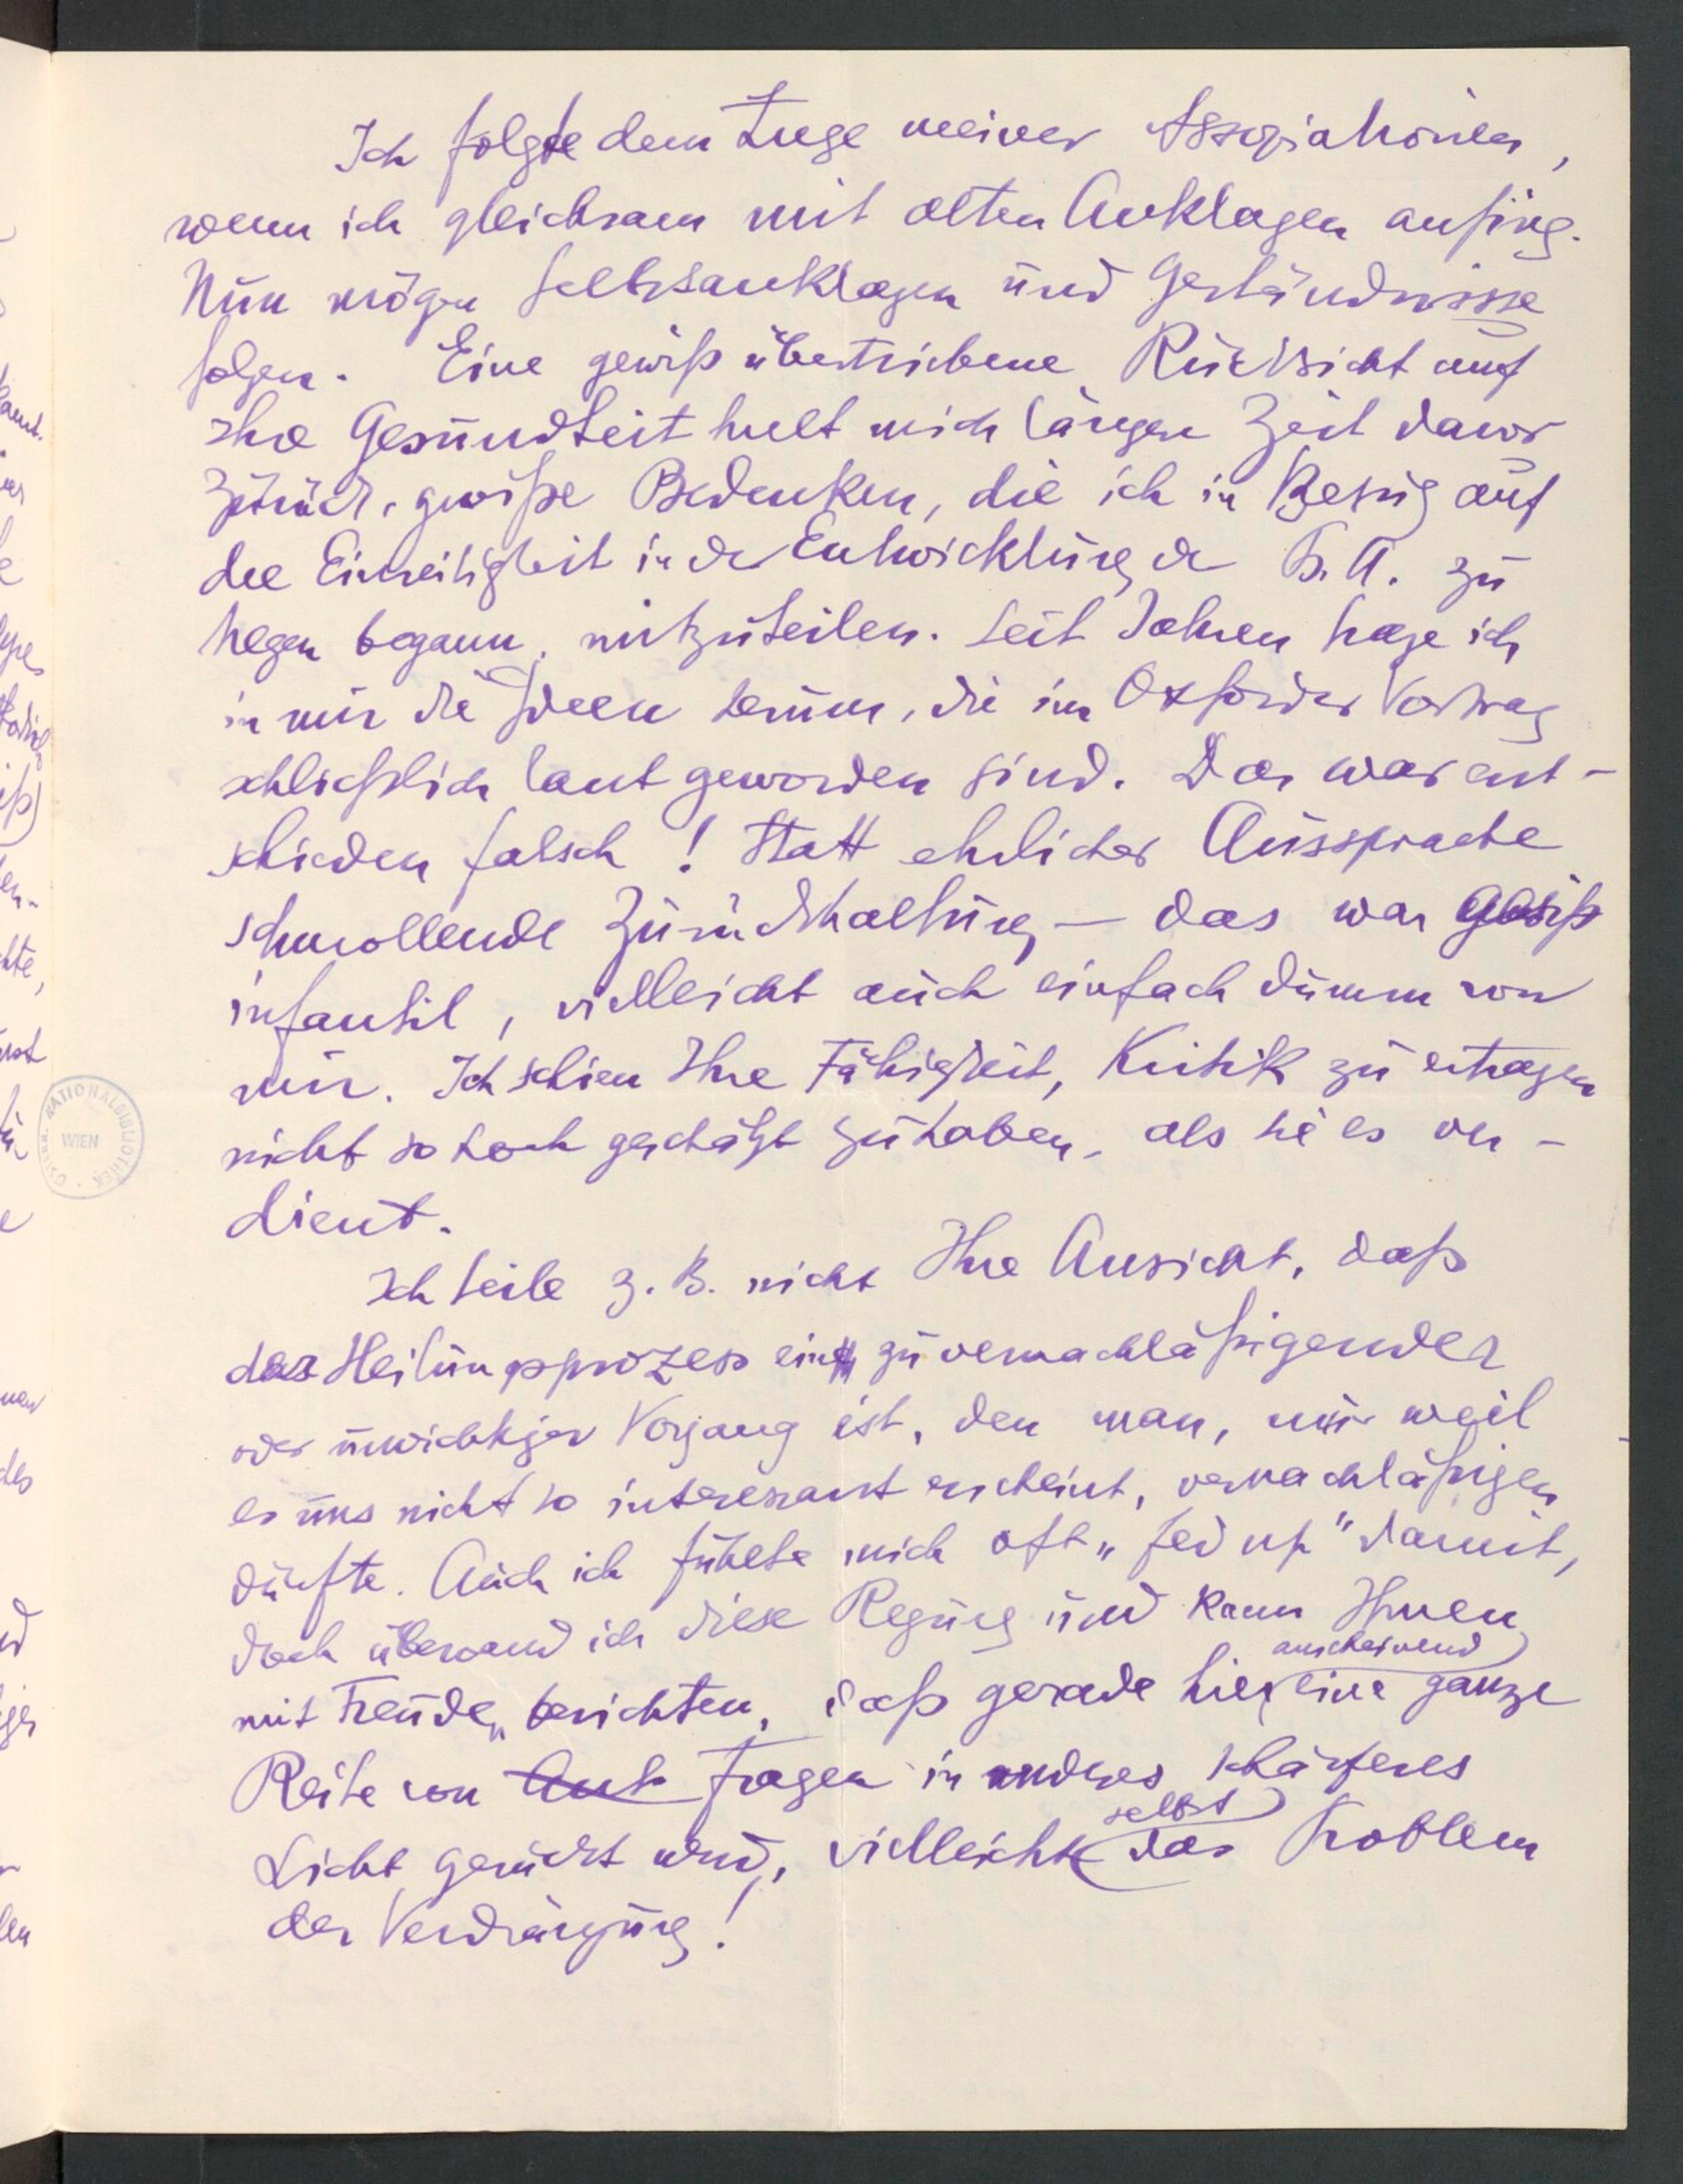 Ich folgte dem Zuge meiner Assoziationen,
wenn ich gleichsam mit alten Anklagen anfing.
Nun mögen Selbstanklagen und Geständnisse
folgen. Eine gewiß übertriebene Rücksicht auf
Ihre Gesundheit hielt mich längere Zeit davor
zurück, gewiße Bedenken, die ich in Bezug auf
die Einseitigkeit in der Entwicklung der Ps.A. zu
hegen begann, mitzuteilen. Seit Jahren trage ich
in mir die Ideen herum, die im Oxforder Vortrag
schließlich laut geworden sind. Das war ent-
schieden falsch! Statt ehrlicher Aussprache
schmollende Zurückhaltung – das war gewiß
infantil, vielleicht auch einfach dumm von
mir. Ich schien Ihre Fähigkeit, Kritik zu ertragen
nicht so hoch geschätzt zu haben, als sie es ver-
dient.
Ich teile z.B. nicht Ihre Ansicht, daß
der Heilungsprozess ein zu vernachläßigender
oder unwichtiger Vorgang ist, den man, nur weil
er uns nicht so interessant erscheint, vernachläßigen
dürfte. Auch ich fühlte mich oft „fed up" damit,
doch überwand ich diese Regung und kann Ihnen
anscheinend
mit Freuden berichten, daß gerade hier eine ganze
Reihe von Fragen in anderes schärferes
selbst
Licht gerückt wird, vielleicht das Problem
der Verdrängung!
ÖSTERR. NATIONALBIBLIOTHEK
WIEN